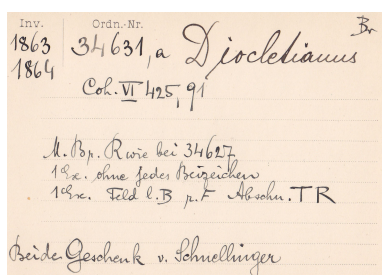 Inv. Ordn.-Nr. Br
1863 34631, a Diocletianus
1864
Coh. VI 425, 91
M. Bp. R wie bei 34627
1 Ex. ohne jedes Beizeichen
1 Ex. Feld l. B r. F Abschn. TR
Beide Geschenk v. Schnellinger